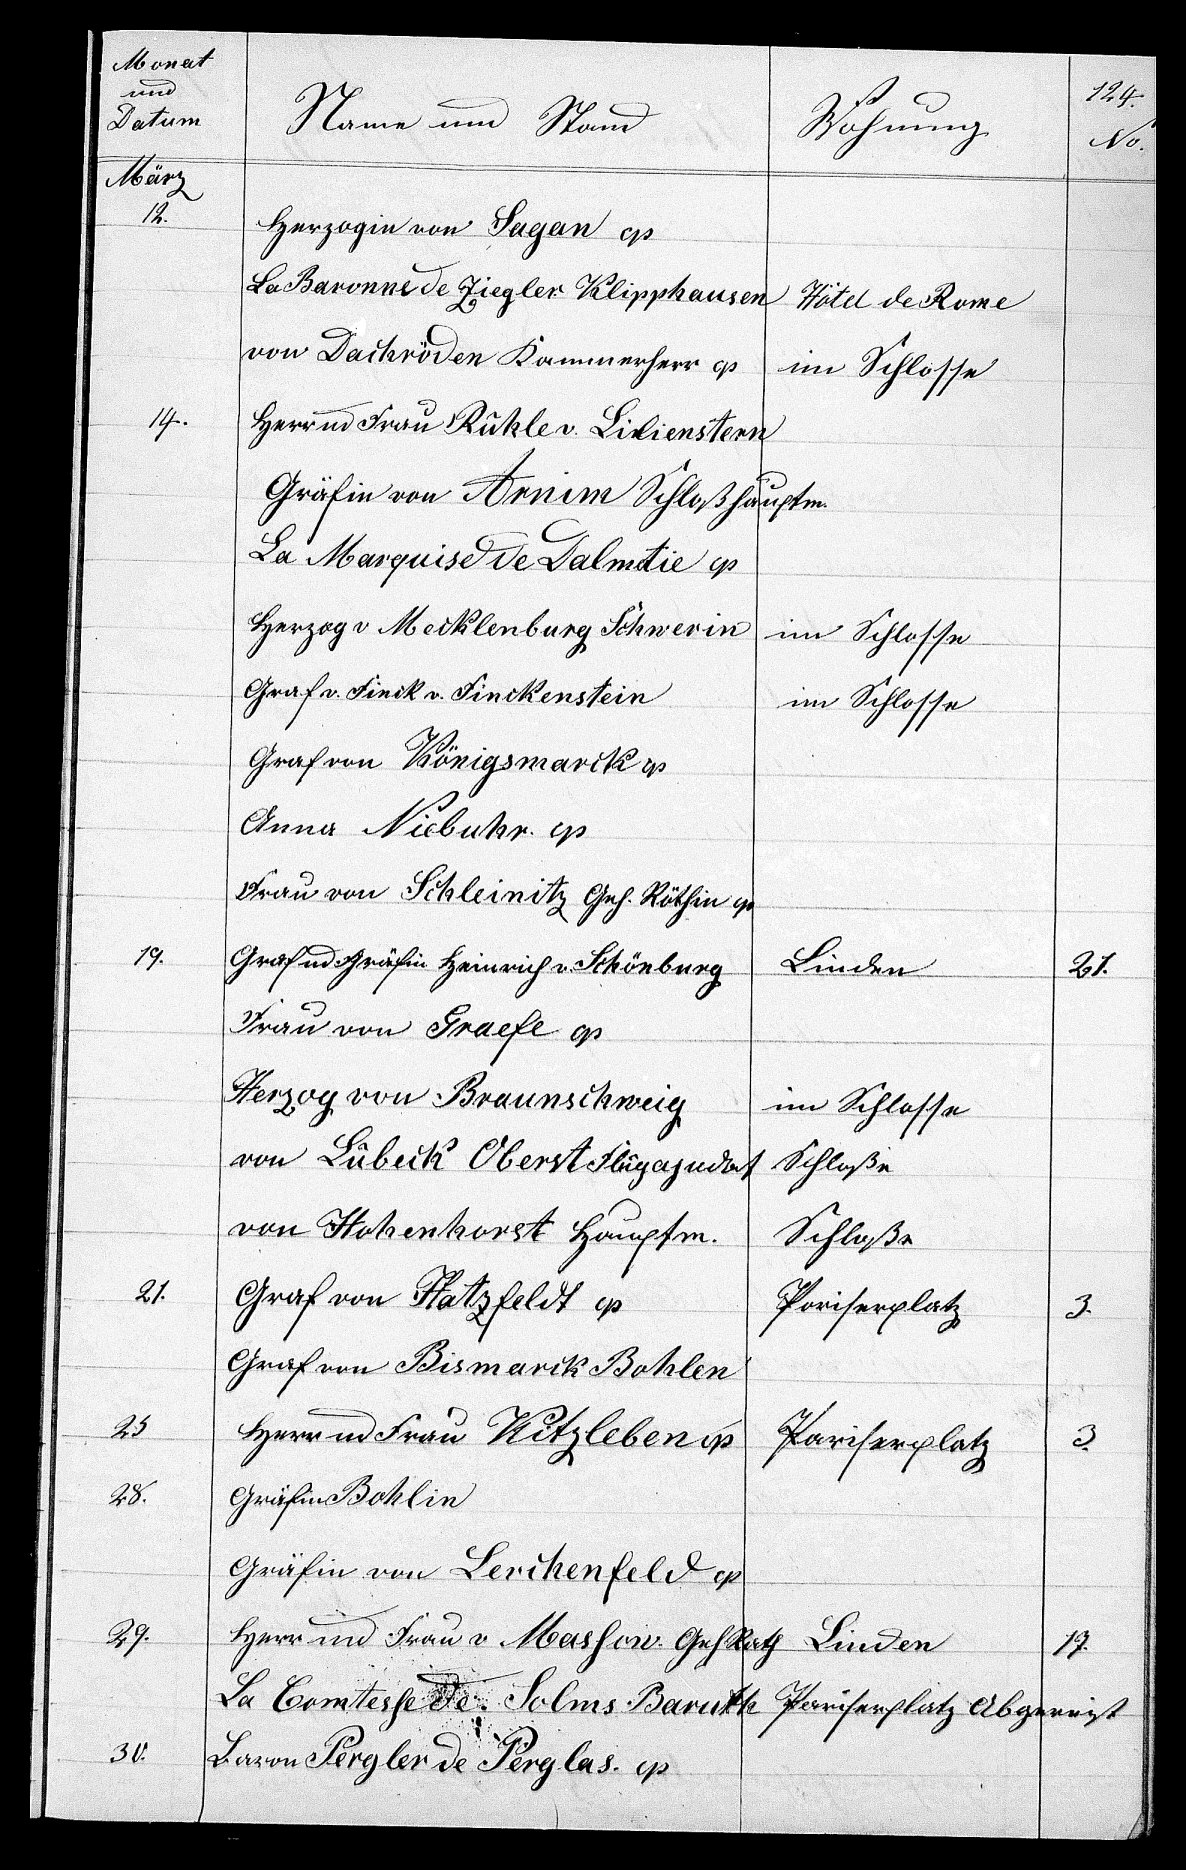 Monat und Datum | Name und Stand | Wohnung | 124. No.
März
12. Herzogin von Sagan cp
La Baronne de Ziegler Klipphausen Hôtel de Rome
von Dachröden Kammerherr cp im Schlosse
14. Herr und Frau Rühle v. Lilienstern
Gräfin von Arnim Schloßhauptm.
La Marquise de Dalmatie cp
Herzog v Mecklenburg Schwerin im Schlosse
Graf v. Finck v. Finckenstein im Schlosse
Graf von Königsmarck cp
Anna Niebuhr. cp
Frau von Schleinitz Geh. Räthin cp
19. Graf und Gräfin Heinrich v. Schönburg Linden 21.
Frau von Graefe cp
Herzog von Braunschweig im Schlosse
von Lübeck Oberst Flügajudat Schloße
von Hohenhorst Hauptm. Schloße
21. Graf von Hatzfeldt cp Pariserplatz 3.
Graf von Bismarck Bohlen
25 Herr und Frau Witzleben cp Pariserplatz 3.
28. Gräfin Bohlin
Gräfin von Lerchenfeld cp
29. Herr und Frau v Massow. Geh Rath Linden 17.
La Comtesse de Solms Baruth Pariserplatz Abgereist
30. Baron Pergler de Perglas. cp